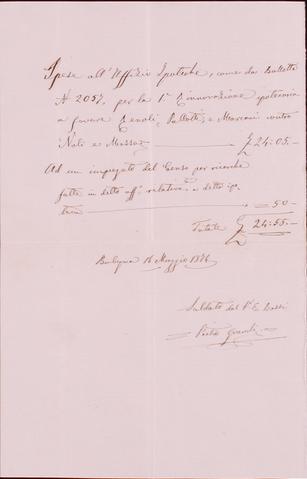 Spese all'Uffizio Ipoteche, come da bolletta
N° 2057, per la 1ª rinnovazione ipotecaria
a favore Cenoli, Pallotti e Marconi contro
Noli e Mazza £ 24-05.-
Ad un impiegato del Censo per ricerche
fatte in detto aff.e relative a detta ipo
teca - 50 -
Totale £ 24-55.-
Bologna 16 Maggio 1846
Saldato dal P. E.
Pietro